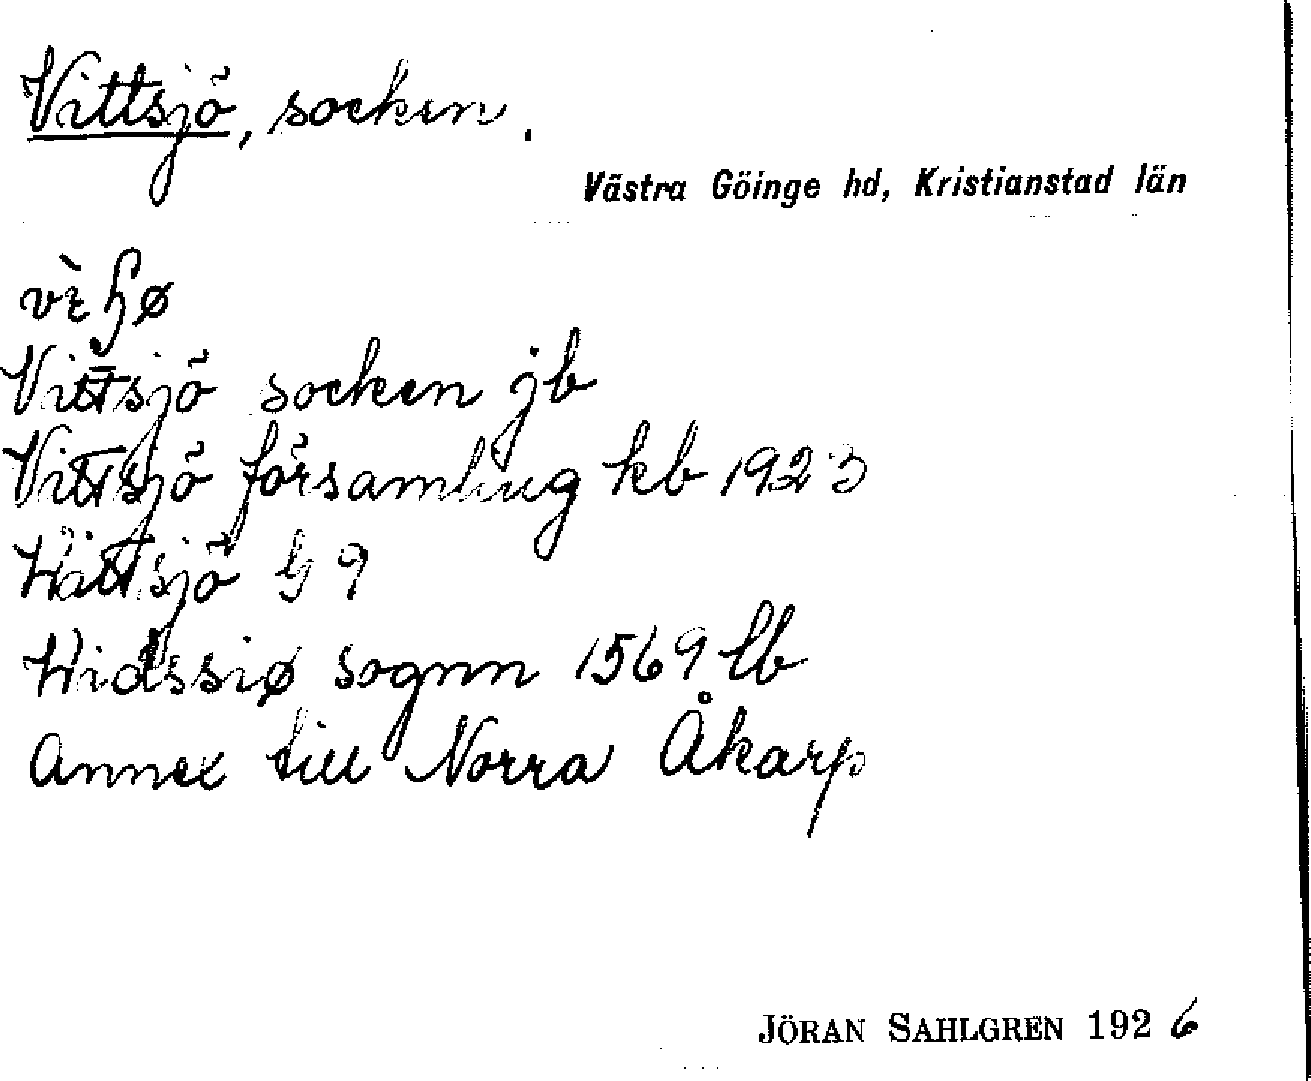 Vittsjö, socken.
Västra Göinge hd, Kristianstad län
Vittsjö socken jb
Vittsjö församling kb 1923
Wittsjö G 9
Widssiø sognn 1569 lb
Annex till Norra Åkarp
JÖRAN SAHLGREN 1926